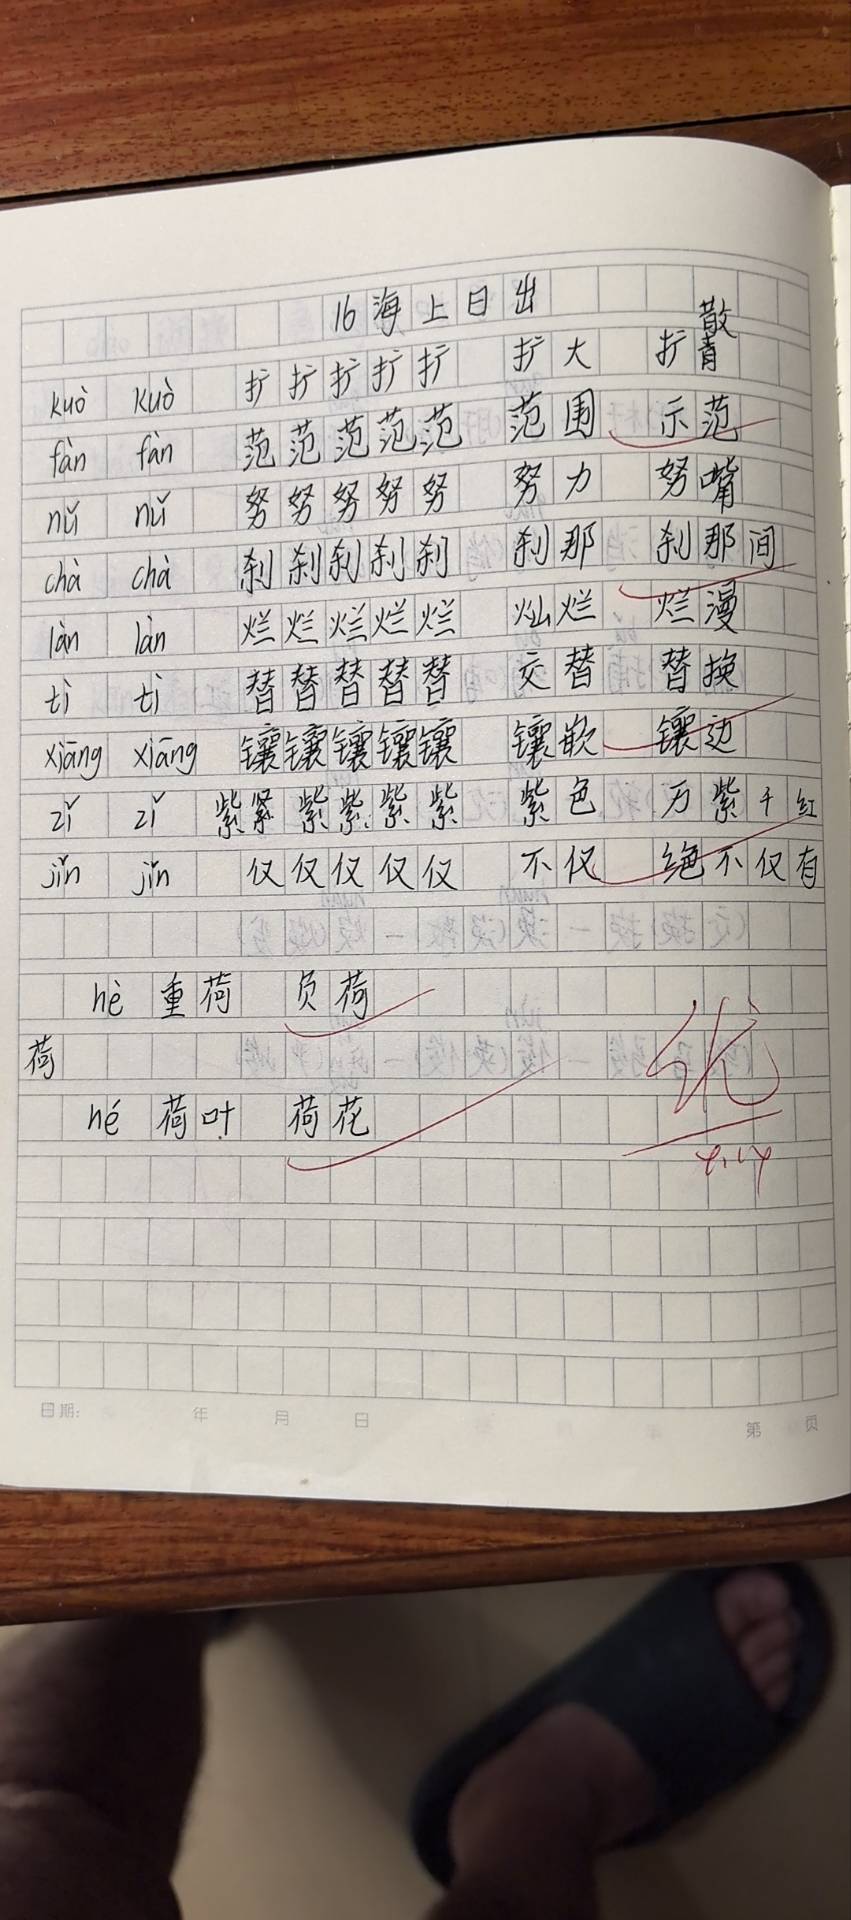 16 海上日出
kuò kuò 扩扩扩扩扩 扩大 扩散
fàn fàn 范范范范范 范围 示范
nǔ nǔ 努努努努努 努力 努嘴
chà chà 刹刹刹刹刹 刹那 刹那间
làn làn 烂烂烂烂烂 灿烂 烂漫
tì tì 替替替替替 交替 替换
xiāng xiāng 镶镶镶镶镶 镶嵌 镶边
zǐ zǐ 紫紧紫紫紫紫 紫色 万紫千红
jǐn jǐn 仅仅仅仅仅 不仅 绝不仅有
hè 重荷 负荷
荷
hé 荷叶 荷花
优
日期: 年 月 日 第 页